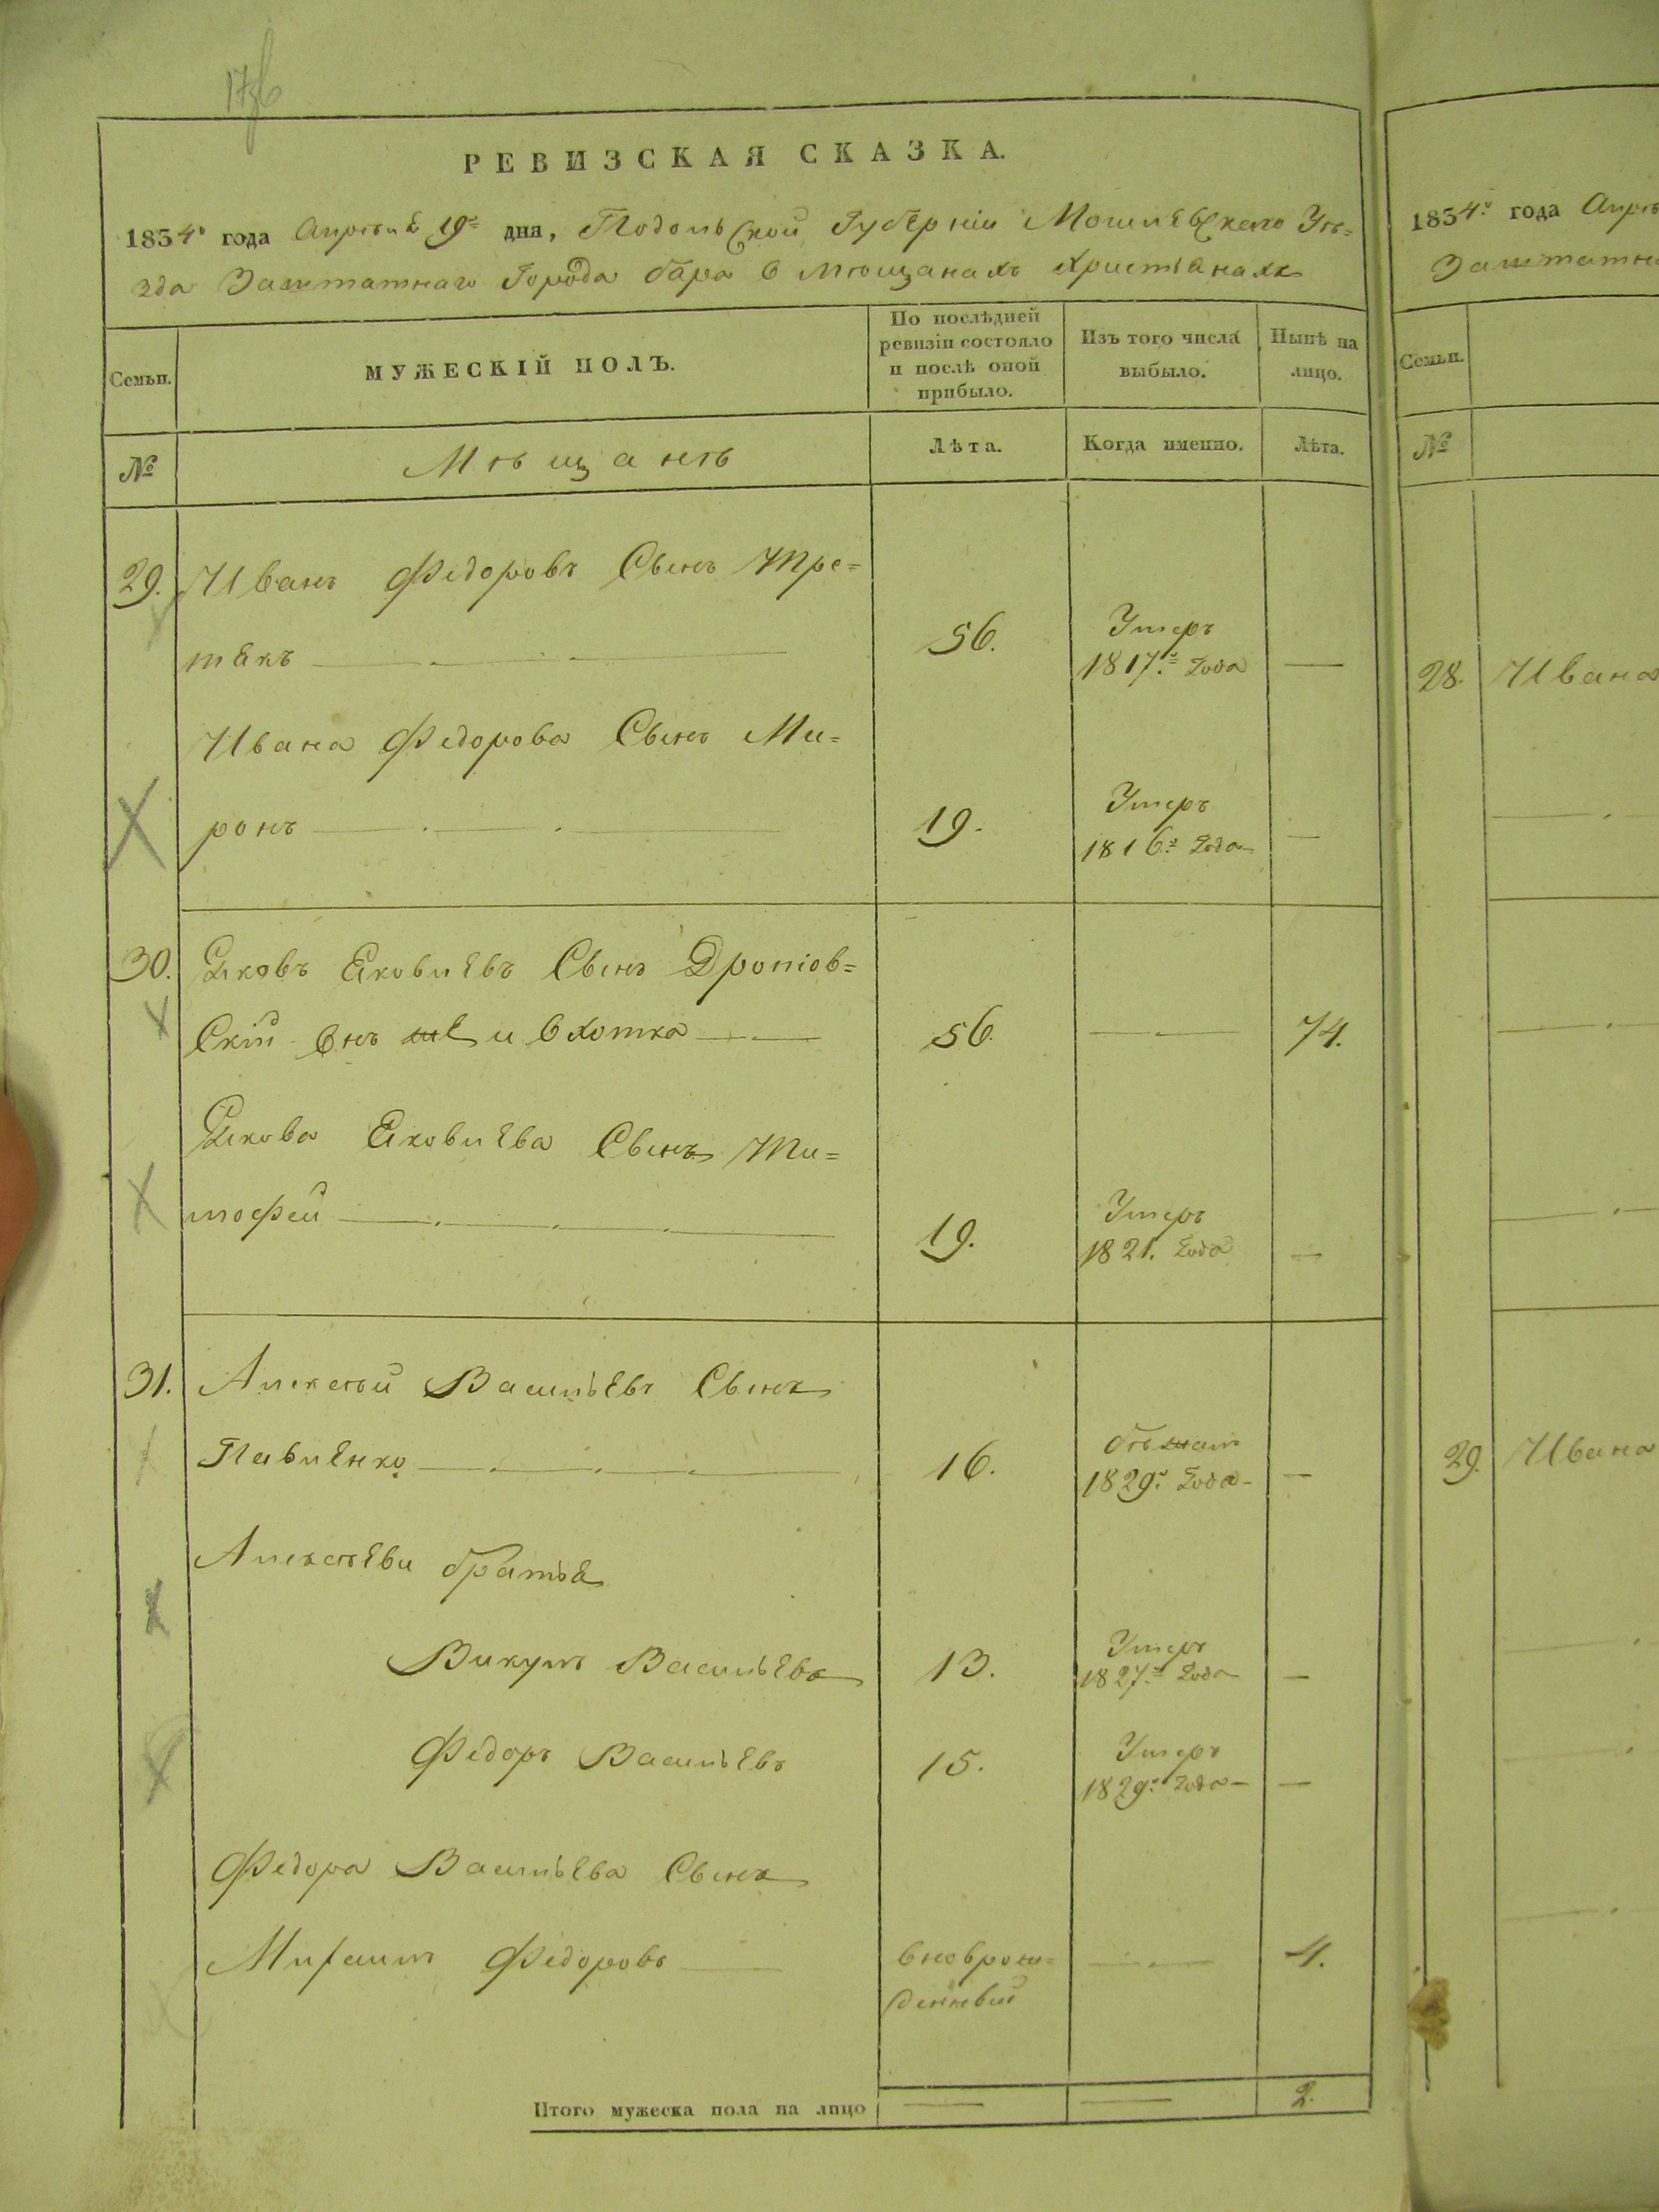 РЕВИЗСКАЯ СКАЗКА.
1834го года Апрѣля 19го дня, Подольской Губерніи Могилевского Уѣ=
зда Заштатнаго Города бара о мѣщанахъ Христіанахъ
Семьи.
МУЖЕСКІЙ ПОЛЪ.
По послѣдней
ревизіи состояло
и послѣ оной
прибыло.
Изъ того числа
выбыло.
Нынѣ на
лицо.
№
Мѣщанъ
Лѣта.
Когда именно.
Лѣта.
29. Иванъ Федоровъ Сынъ Тре=
тякъ 56. Умеръ 1817го Года
Ивана Федорова Сынъ Ми=
ронъ 19. Умеръ 1816го Года
30. Яковъ Яковлевъ Сынъ
Скій онъ же и 56. 74.
Якова Яковлева Сынъ Ти=
мофей 19. Умеръ 1821. Года
31. Алексѣй Васильевъ Сынъ
Павленко 16. бѣжалъ 1829го Года
Алексѣеви братья
Викулъ Васильевъ 13. Умеръ 1827го Года
Федоръ Васильевъ 15. Умеръ 1829го Года
Федора Васильева Сынъ
Михаилъ Федоровъ вноврож=
денный 4.
Итого мужеска пола на лицо 2.
1834го года
Семьи.
№
28. Ивана
29. Ивана